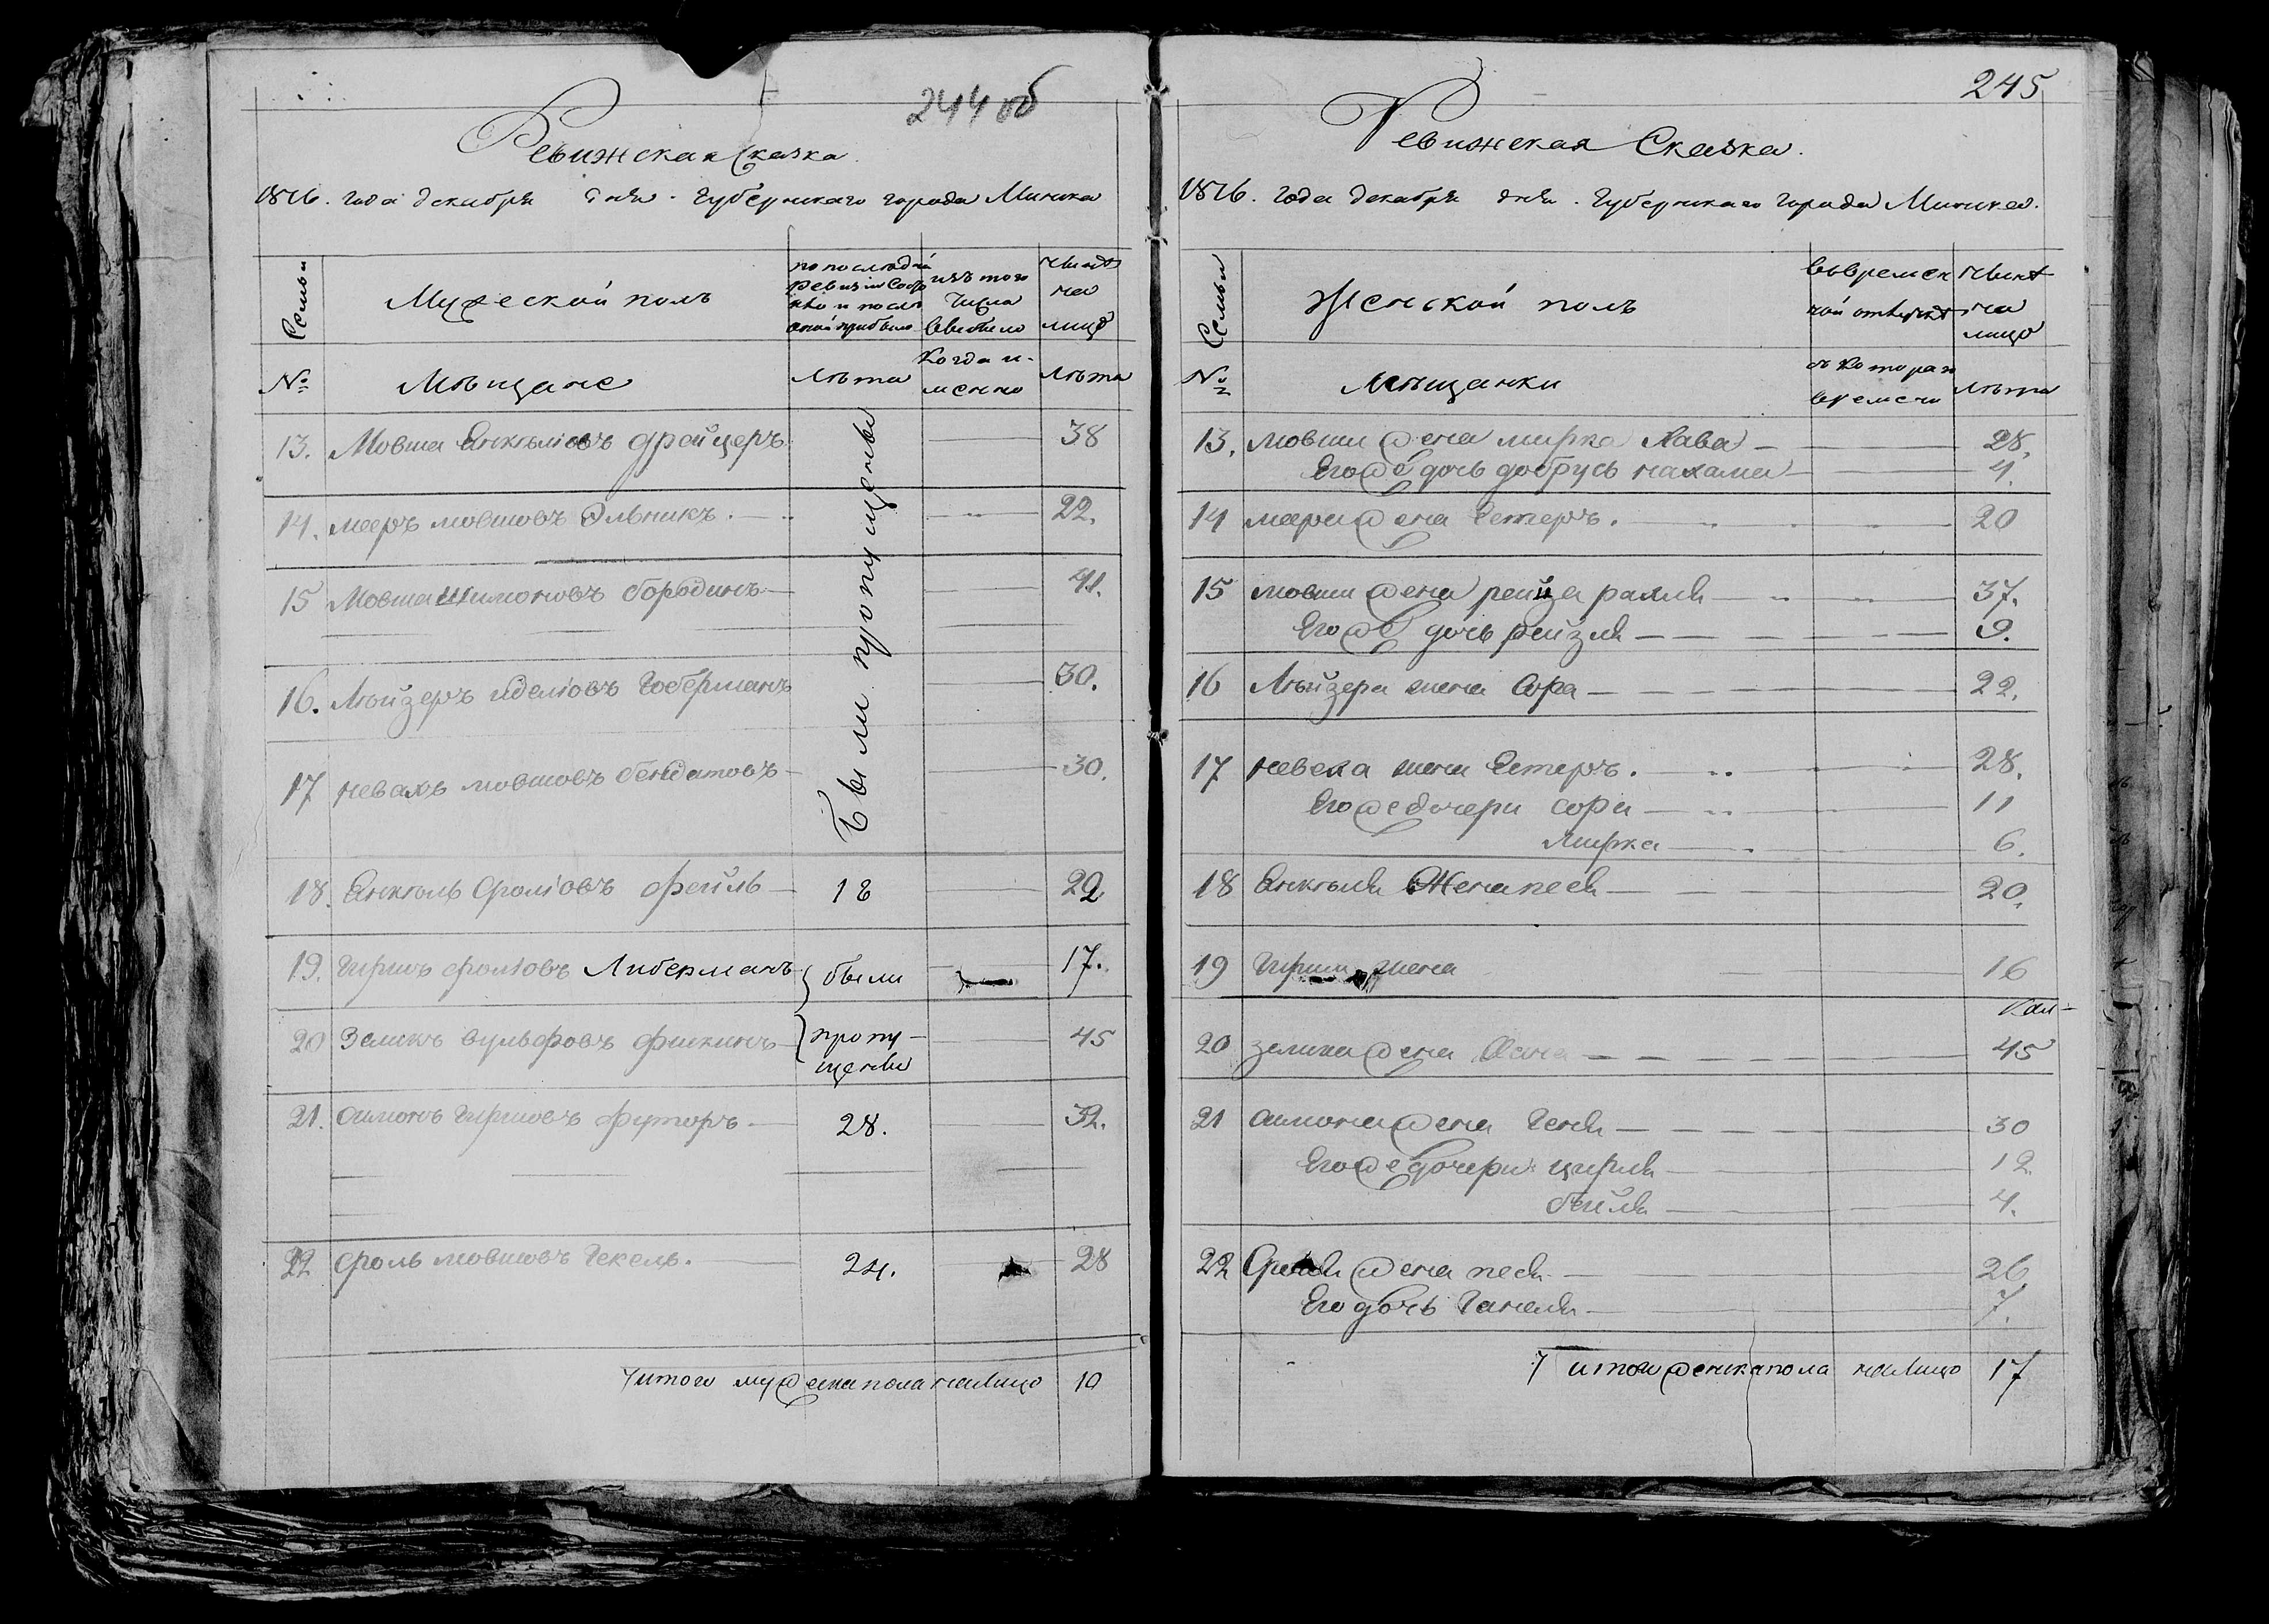 244 об
Ревижская Сказка.
1816. года декабря дня. Губернскаго города Минска
Семьи
Мужеской полъ
по последней
ревизии состо
яло и после
оной прибыло
изъ того
числа
выбыло
ныне
на
лицо
№
Мещане
Лета
когда и-
менно
Лета
Были пропущены
13. Мовша Янкелiовъ Фрейцеръ 38
14. Мееръ Мовшовъ Эльникъ. 22.
15 Мовша Шимоновъ бородинъ 41.
16. Лейзеръ Иделiовъ Гоберманъ 30.
17 Невахъ Мовшовъ бендатовъ 30.
18. Янкель Сролiовъ Фейль 18 22
19. Гиршъ Сролiовъ Либерманъ были 17.
20 Зеликъ Вульфовъ Фишкинъ пропу- 45
щены
21. Симонъ Гиршовъ Футоръ 28. 32.
22 Сроль Мовшовъ Гекель. 24. 28
итого мужеска пола налицо 10
245
Ревижская Сказка.
1816. года декабря дня. Губернскаго города Минска.
Семьи
Женской полъ
во времен
ной отлучке
ныне
на
лицо
№
Мещанки
съ котораго
времени
Лета
13. Мовши жена мирка Хава 28.
Его же дочь добрусь нахама 4.
14 Меера жена Естеръ. 20
15 Мовши жена рейза 37.
Его же дочь рейзля 9.
16 Лейзера жена Сора 22.
17 Неваха жена Естеръ. 28.
Его же дочери сора 11
Мирка 6.
18 Янкеля Жена песя 20.
19 Гирша жена 16
20 Зелика жена Хана 45
21 Симона жена Геня 30
Его же дочери: цирля 12
бейля 4.
22 Сроля жена песя 26
Его дочь Ганеля 7.
итого женска пола налицо 17